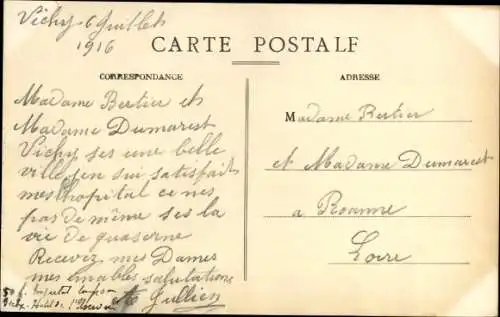 Vichy 6 Juillet
1916
CARTE POSTALE
CORRESPONDANCE
Madame Bertier et
Madame Dumarest
Vichy ses une belle
ville jen sui satisfait
mes hopital ce nes
pas de même ses la
vie de quaserne
Recevez mes Dames
mes salutations
Jullien
ADRESSE
Madame Bertier
et Madame Dumarest
a Roanne
Loire